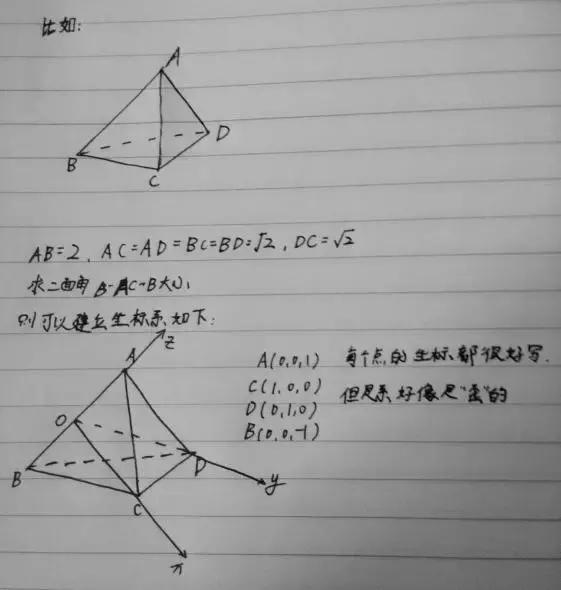 比如:
A
B
D
C
AB=2, AC=AD=BC=BD=√2, DC=√2
求二面角 B-AC-B大小
则可以建立坐标系如下:
z
A
O
B
D
C
y
x
A(0,0,1) 每个点的坐标都很好写.
C(1,0,0) 但是系好像是"歪"的
D(0,1,0)
B(0,0,-1)